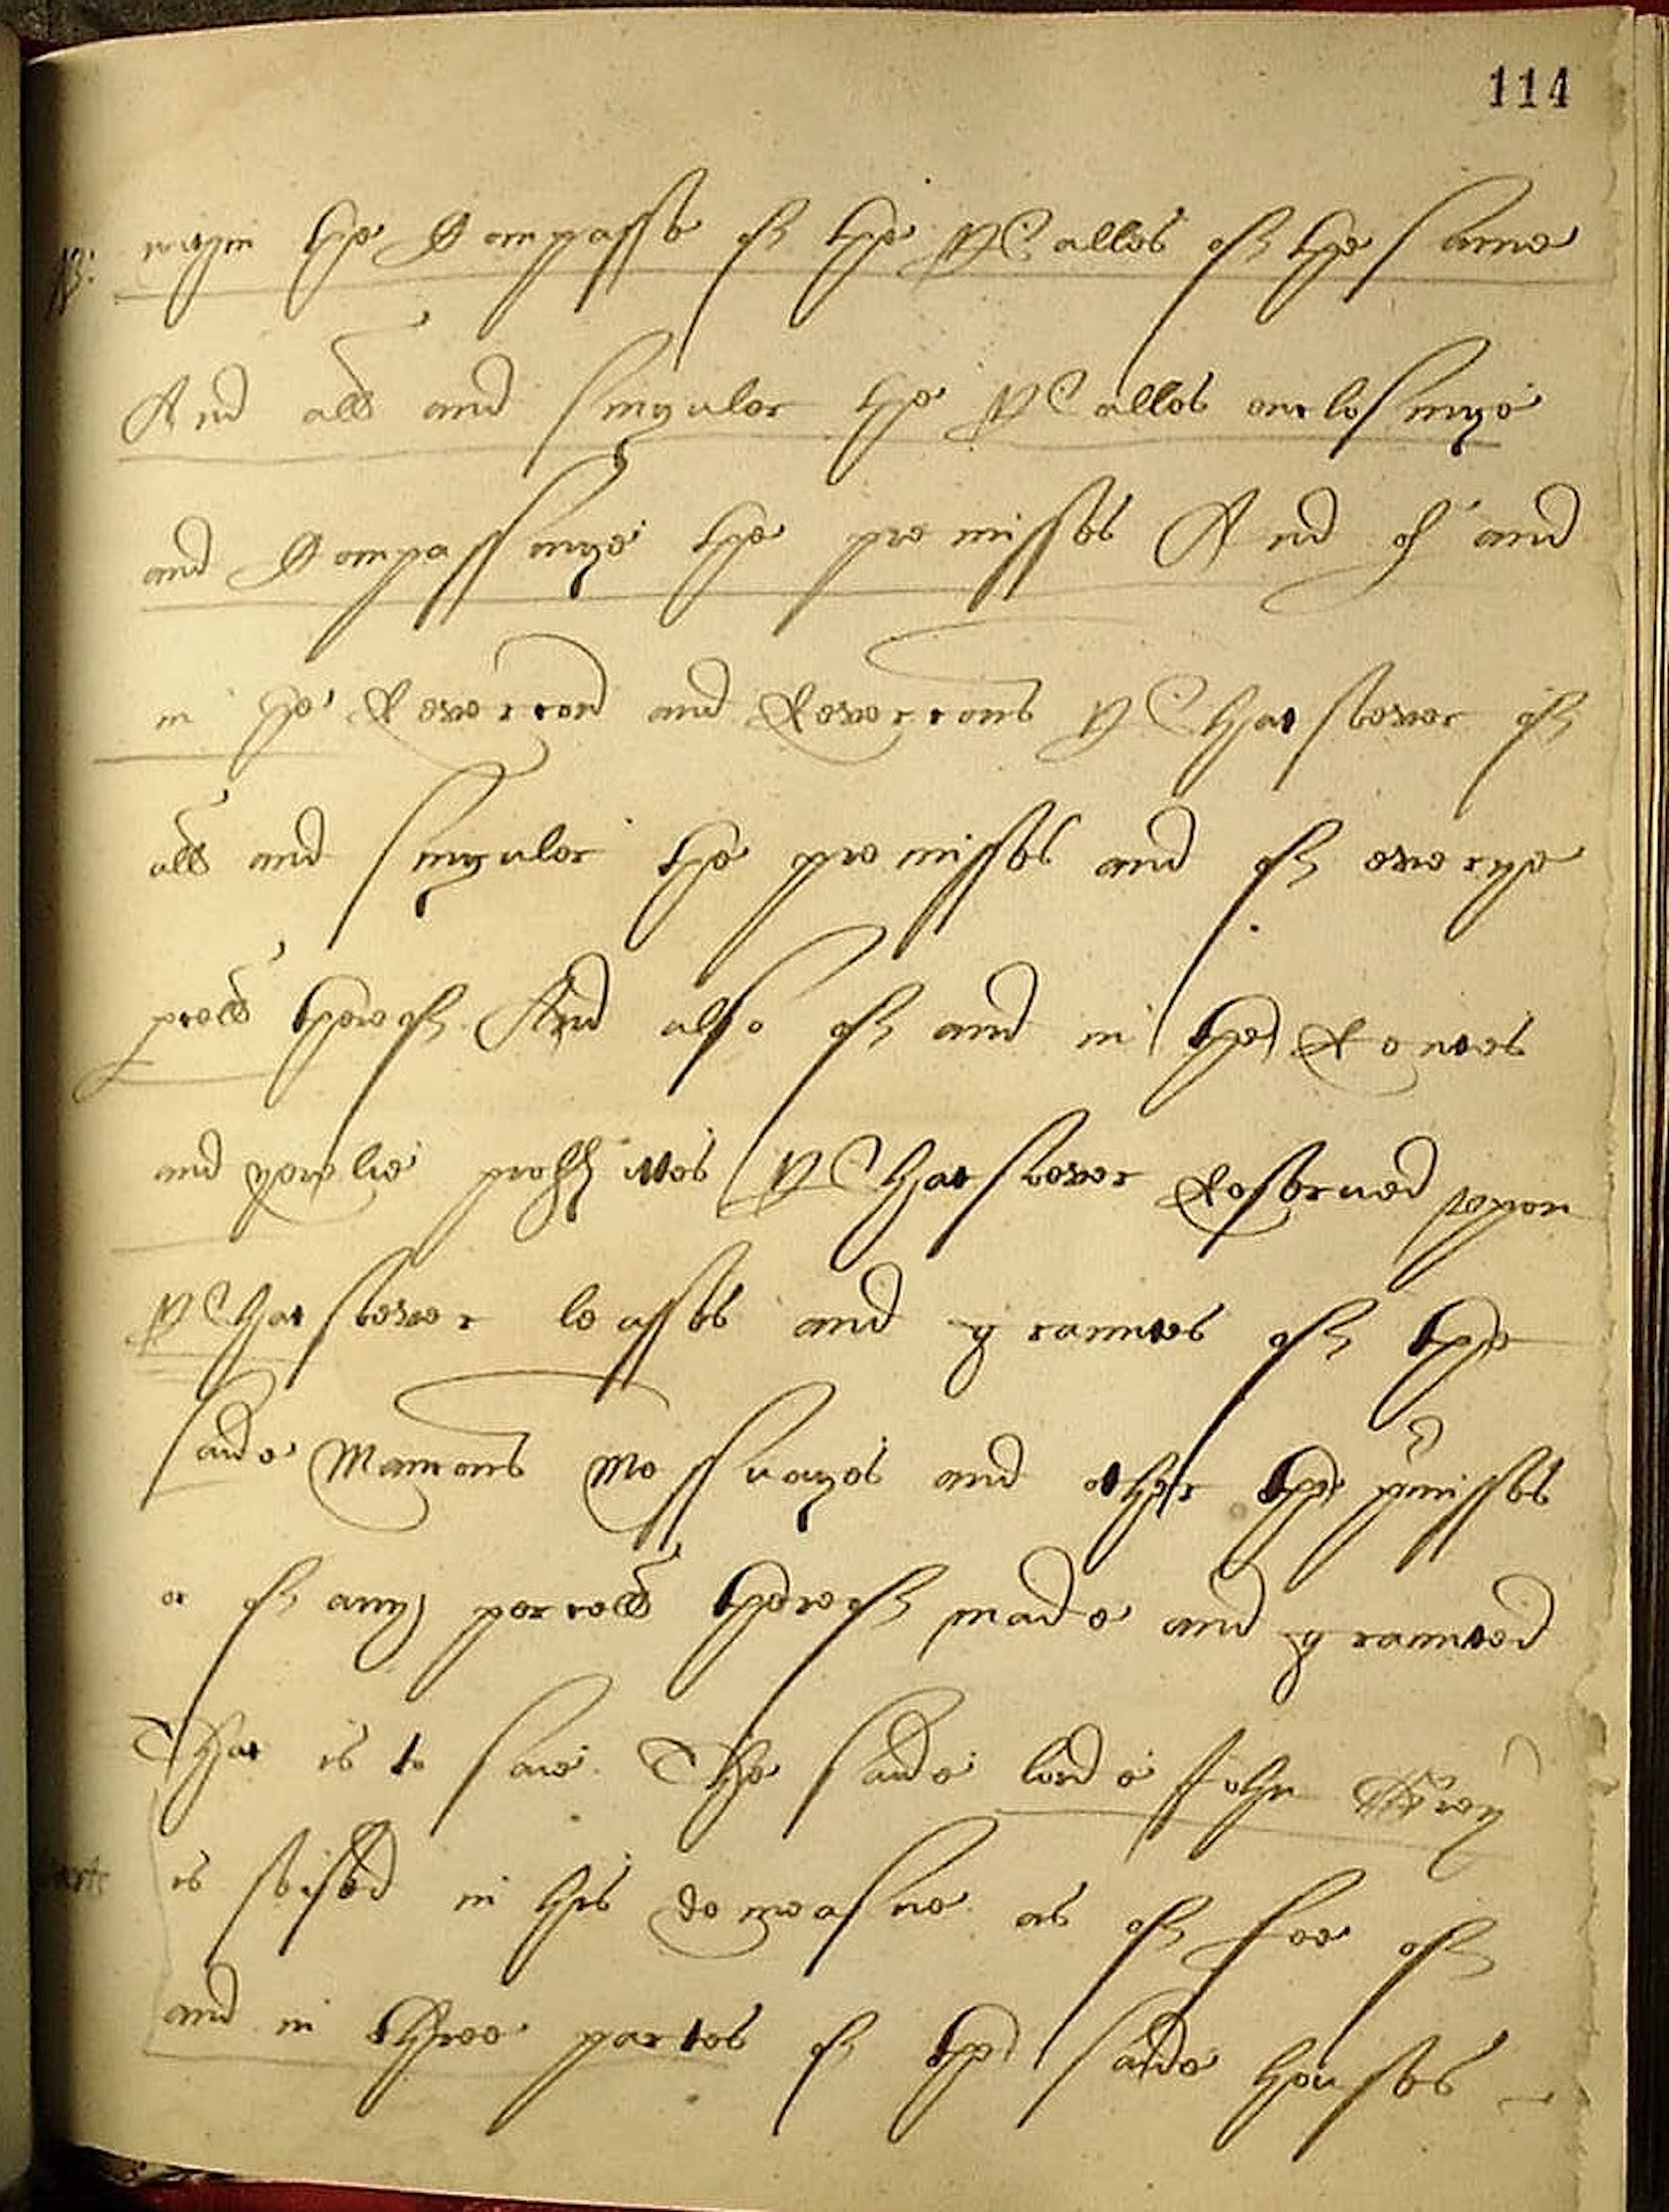 114
within the Compasse of the Walles of the same
And all and singuler the Walles enclosinge
and Compassinge the premisses And of and
in the Revercon and Revercons Whatsoever of
all and singuler the premisses and of everye
prcell thereof And also of and in the Rentes
and yerelie proffittes Whatsoever Reserved uppon
Whatsoever leasses and grauntes of the
saide Mancons Messuages and other the pmisses
or of any parcell thereof made and graunted
That is to saie The saide lorde John Grey
is seised in his demeasne as of fee of
and in three partes of the saide houses